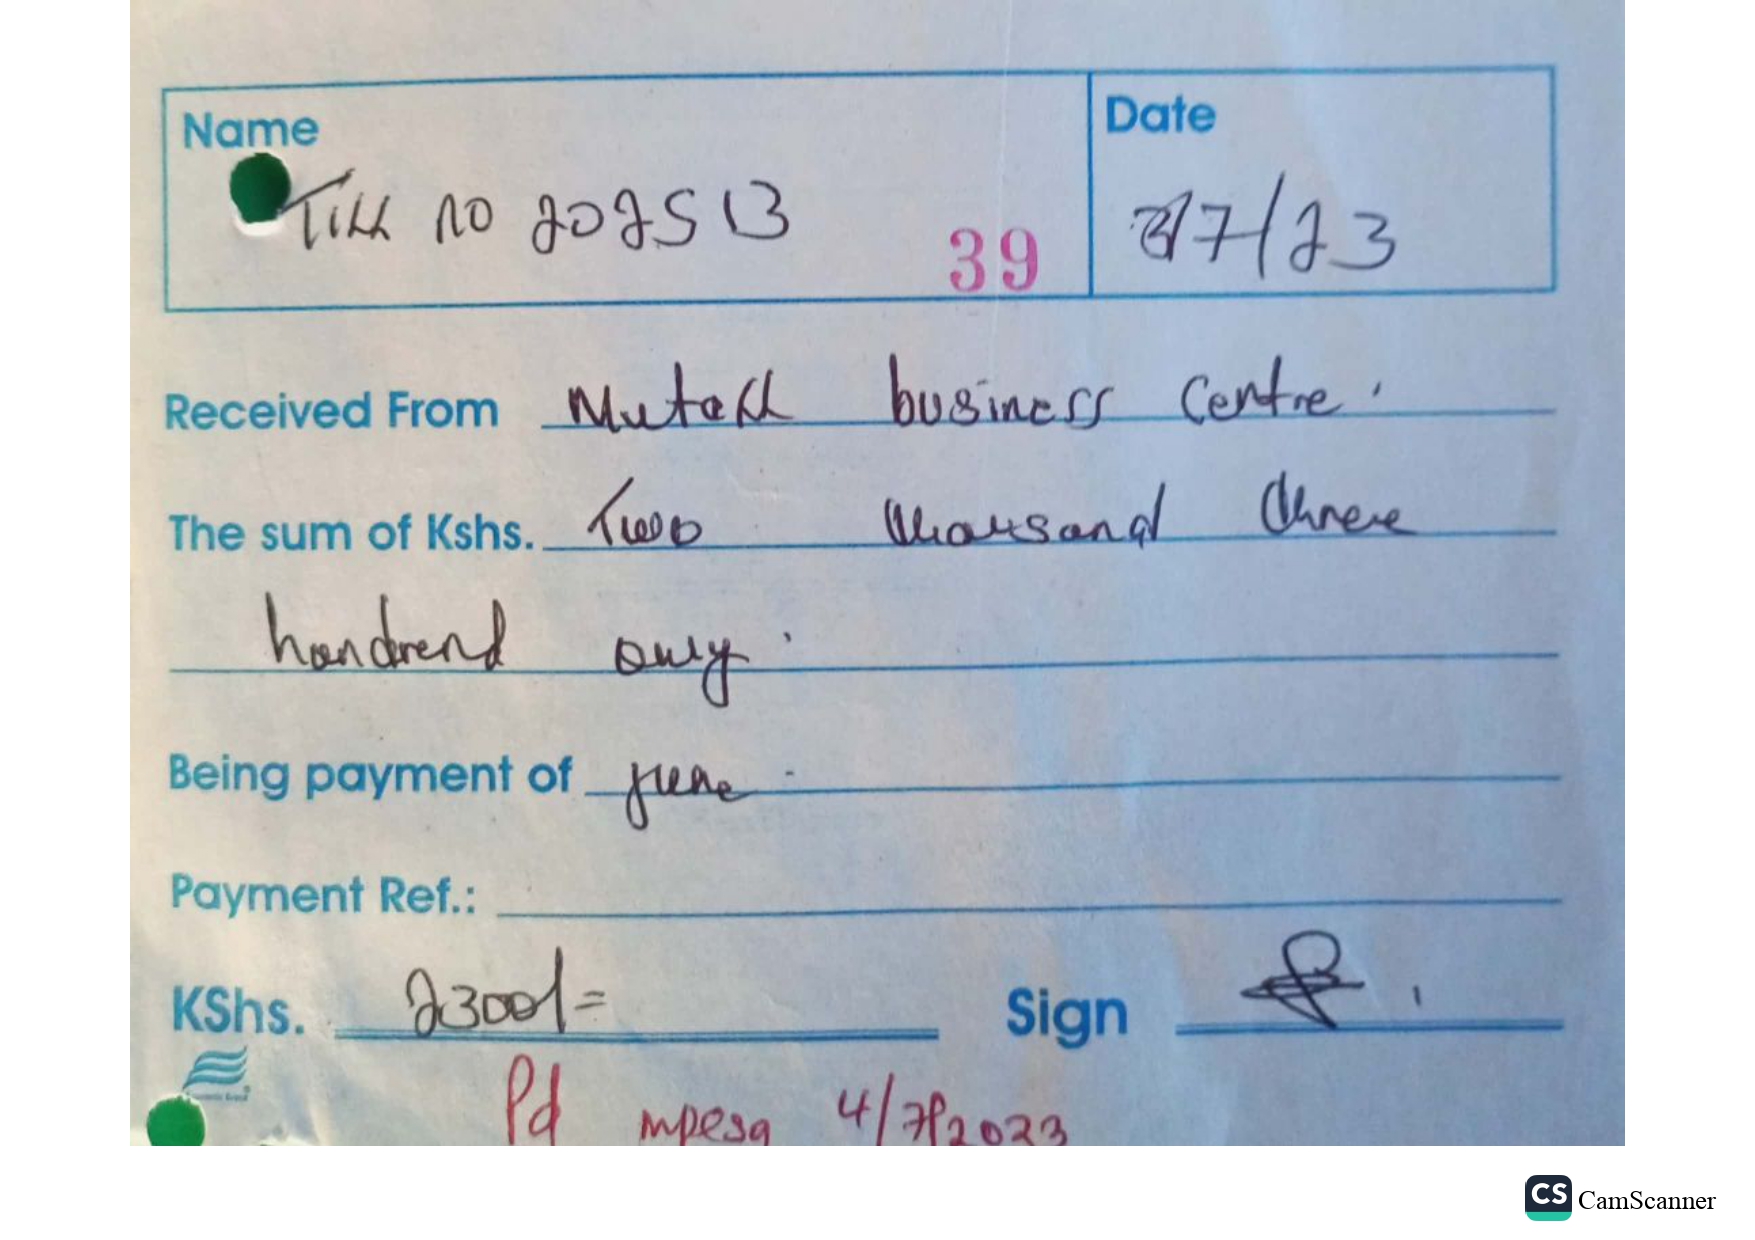 Name
Date
Till no 2025 13
39
/7/23
Received From Mutall business Centre.
The sum of Kshs. Two thousand three
hondrend only.
Being payment of june -
Payment Ref.:
KShs. 2300/=
Sign
Pd mpesa 4/7/2023
CS CamScanner